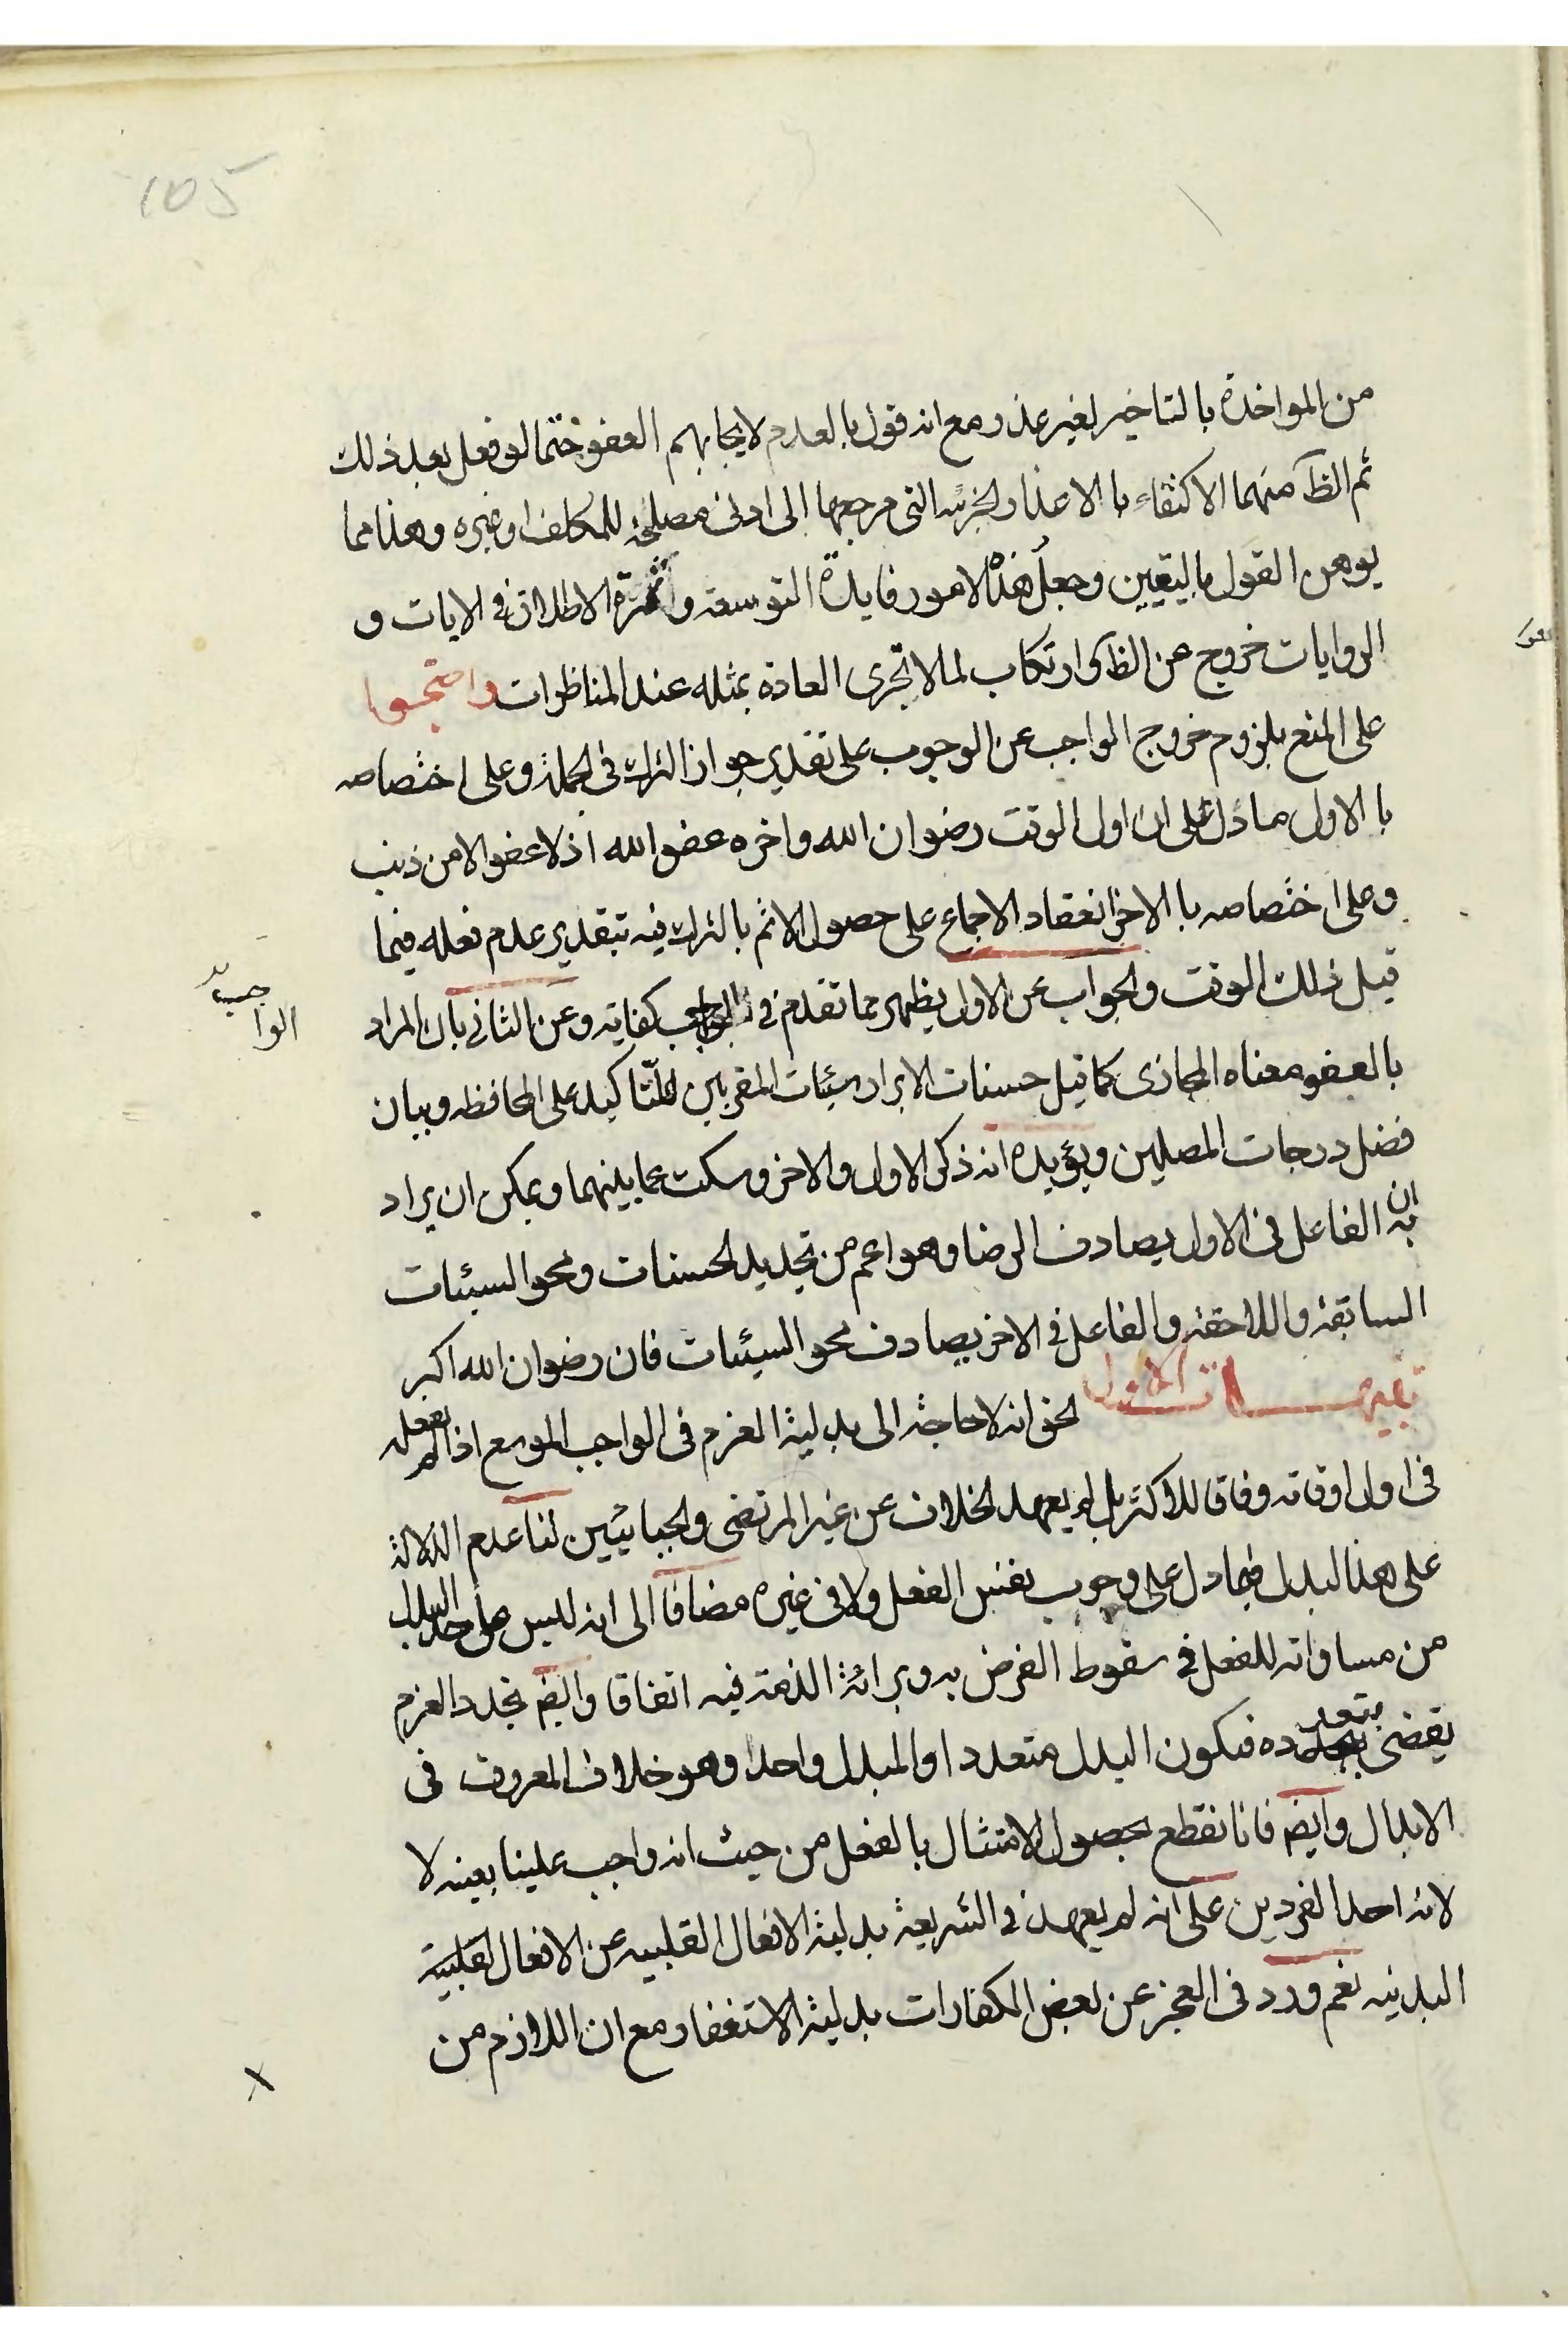 105
من المواخذة بالتاخير لغير عذر ومع انه قول بالعدم لايجابهم العفو ختما لو فعل بعد ذلك
ثم الظ منهما الاكتفاء بالاعذار الجزئيه التى مرجعها الى ادنى مصلحة للمكلف او غيره وهذا مما
يوهن القول باليقيين وجعل هذه الامور فايدة التوسعه وثمرة الاطلاق فى الايات و
الروايات خروج عن الظ وارتكاب لما لا تجرى العادة بمثله عند المناظرات واحتجوا
على المنع بلزوم خروج الواجب عن الوجوب على تقدير جواز الترك فى الجملة وعلى اختصاصه
بالاول ما دل على ان اول الوقت رضوان الله واخره عفو الله اذ لا عفو الا من ذنب
وعلى اختصاصه بالاخر انعقاد الاجماع على حصول الاثم بالترك فيه بتقدير عدم فعله فيما
قبل ذلك الوقت والجواب عن الاول يظهر مما تقدم فى الواجب كفايته وعن الثانى بان المراد
الواجب
بالعفو معناه المجازى كما قيل حسنات الابرار سيئات المقربين للتاكيد على المحافظه وبيان
فضل درجات المصلين ويؤيده انه ذكر الاول والاخر وسكت عما بينهما ويمكن ان يراد
به ان الفاعل فى الاول يصادف الرضا وهو اعم من تجديد الحسنات ومحو السيئات
السابقة واللاحقه والفاعل فى الاخر يصادف محو السيئات فان رضوان الله اكبر
تنبيهات الاول الحق انه لا حاجة الى بدلية العزم فى الواجب الموسع اذا لم يفعله
فى اول اوقاته وفاقا للاكثر بل لم يعهد الخلاف عن غير المرتضى والجبائيين لنا عدم الدلالة
على هذا البدل فيما دل على وجوب نفس الفعل ولا فى غيره مضافا الى انه ليس على حد البدل
من مساواته للفعل فى سقوط الفرض به وبرائة الذمة فيه اتفاقا وايضا تجدد العزم
يقضى بتعدده فيكون البدل متعددا والمبدل واحدا وهو خلاف المعروف فى
الابدال وايضا فانا نقطع بحصول الامتثال بالفعل من حيث انه واجب علينا بعينه لا
لانه احد الفردين على انه لم يعهد فى الشريعة بدلية الافعال القلبيه عن الافعال القلبية
البدنيه نعم ورد فى العجز عن بعض الكفارات بدلية الاستغفار مع ان اللازم من